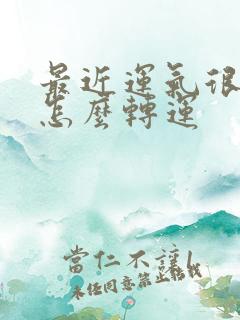 最近運氣很
怎麼轉運
當仁不讓
未經同意禁止轉載